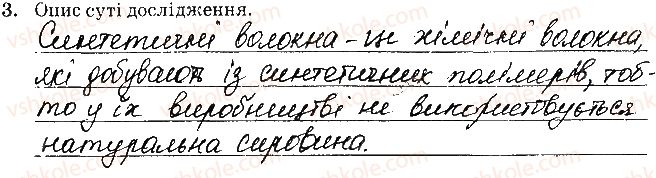 3. Опис суті дослідження.
Синтетичні волокна – це хімічні волокна,
які добувают із синтетичних полімерів, тоб-
то у їх виробництві не використовується
натуральна сировина.